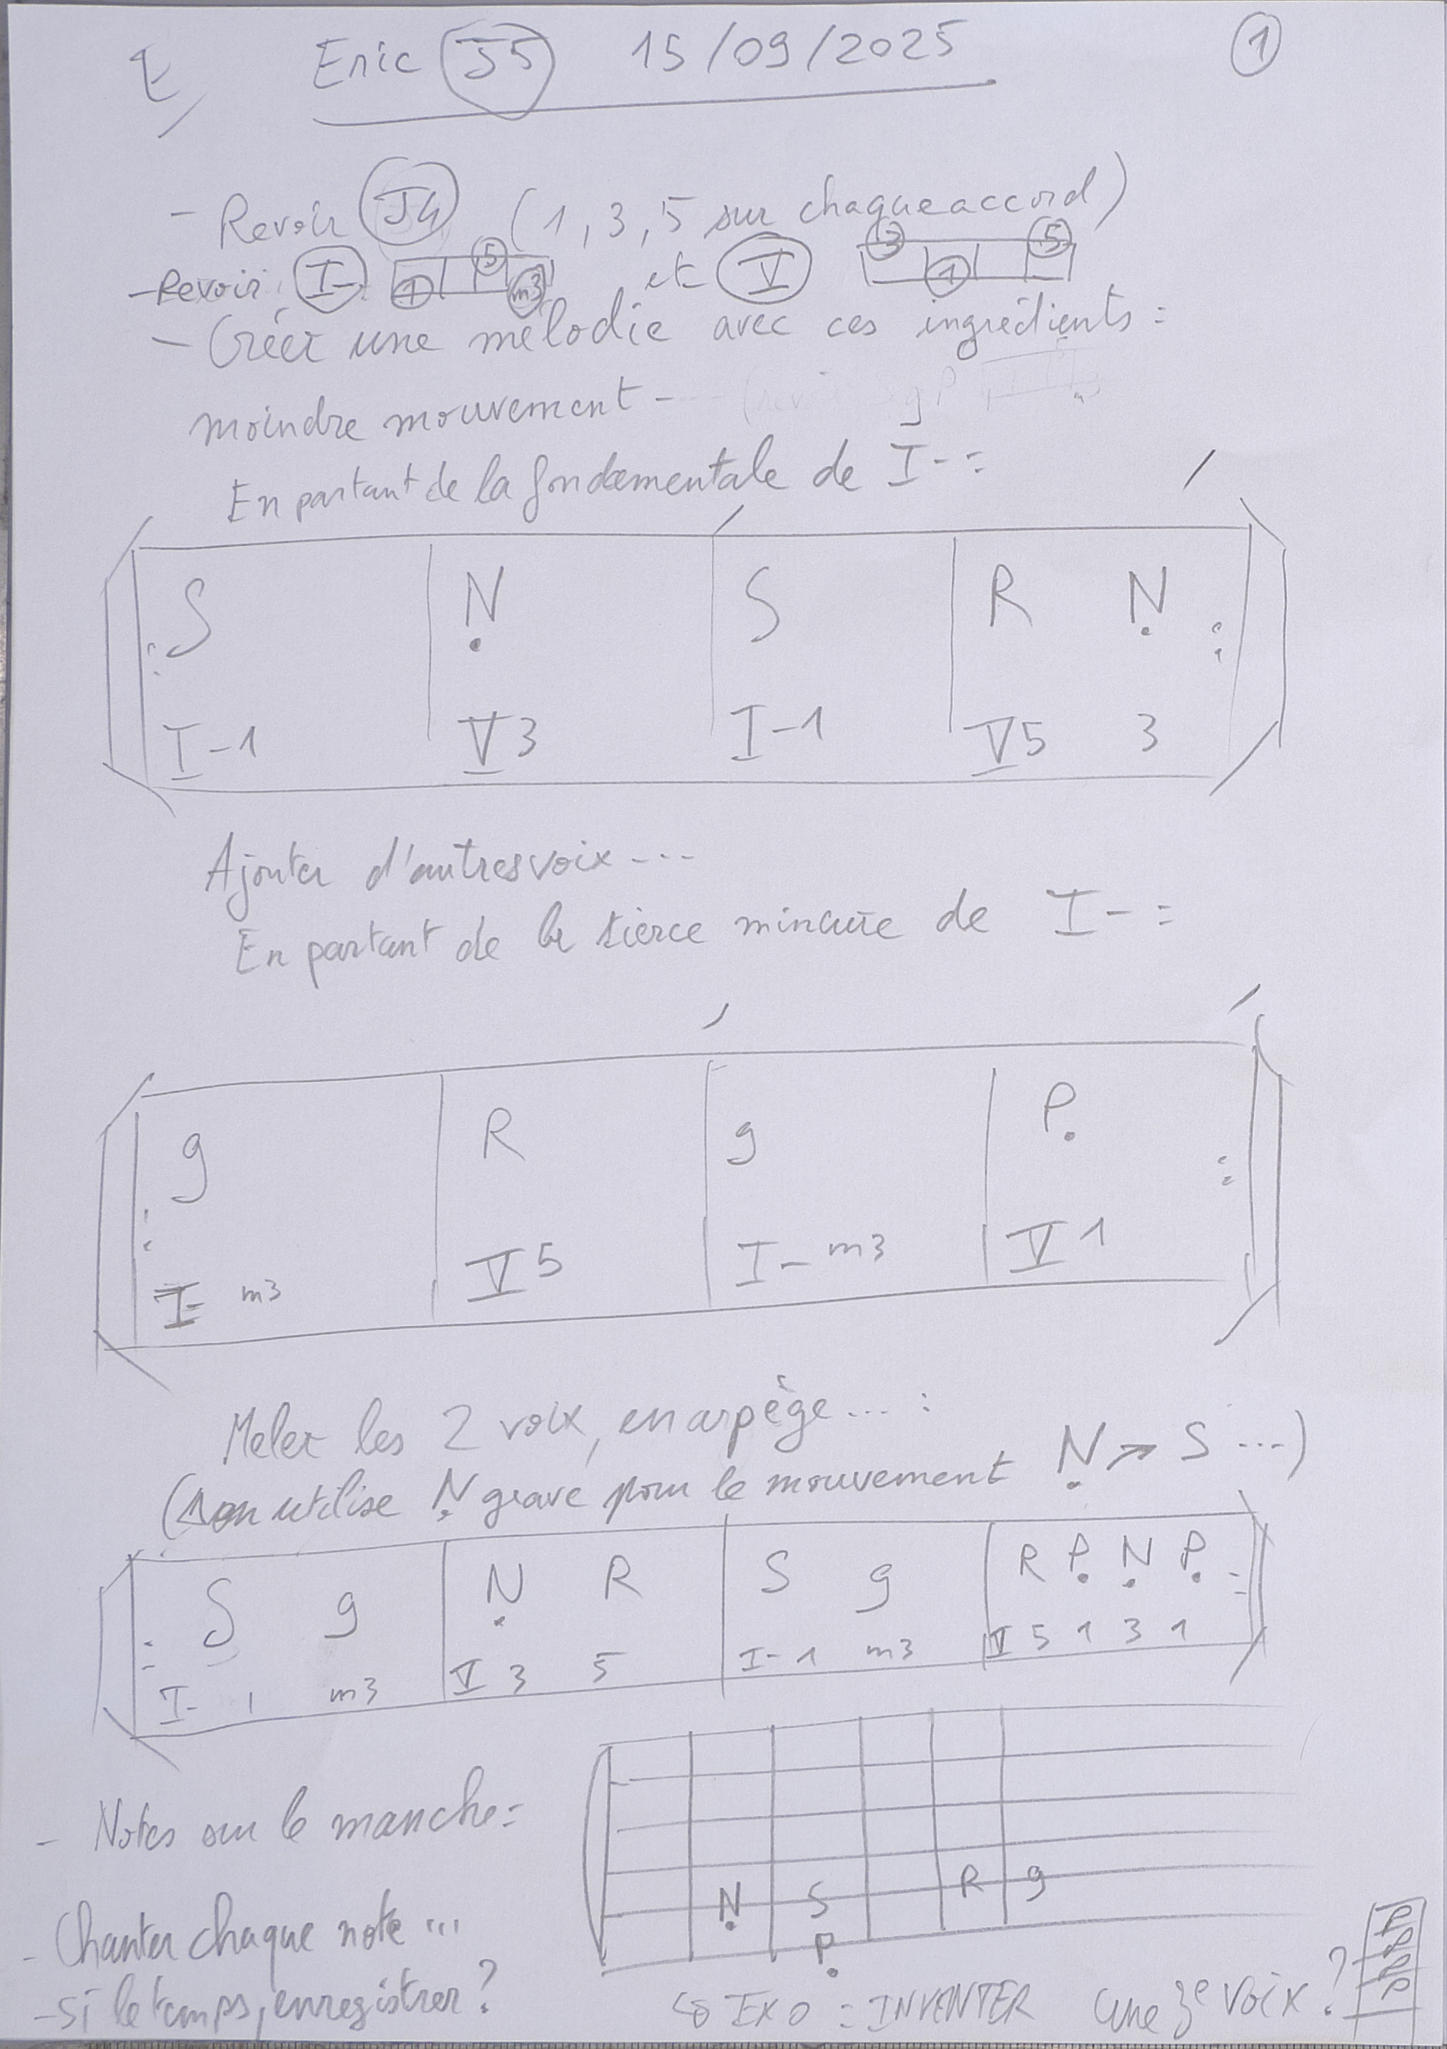 E Eric J5 15/09/2025 1
- Revoir J4 (1, 3, 5 sur chaque accord)
- Revoir : I- 1 5 m3 et V 3 1 5
- Créer une mélodie avec ces ingrédients :
moindre mouvement -
En partant de la fondamentale de I- :
S N S R N
I-1 V3 I-1 V5 3
Ajouter d'autres voix ---
En partant de la tierce mineure de I- :
g R g P
I- m3 V5 I- m3 V1
Meler les 2 voix, en arpège... :
(on utilise N grave pour le mouvement N → S ...)
S g N R S g R P N P
I- 1 m3 V 3 5 I- 1 m3 V 5 1 3 1
- Notes sur le manche :
N S R g
P
- Chanter chaque note ...
- si le temps, enregistrer ?
EXO : INVENTER une 3e voix ?
P
P
P
P